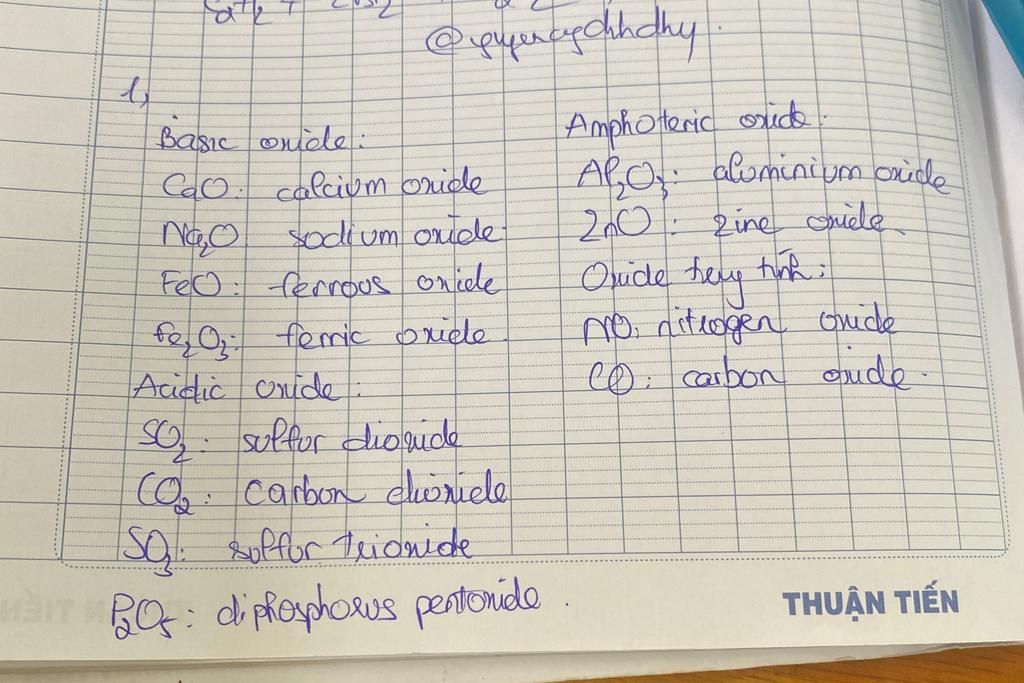 1,
Basic oxide:
CaO: calcium oxide
Na2O sodium oxide
FeO: ferrous oxide
Fe2O3: ferric oxide
Acidic oxide:
SO2: solfur dioxide
CO2: carbon dioxide
SO3: solfur trioxide
P2O5: diphosphorus pentoxide.
Amphoteric oxide:
Al2O3: aluminium oxide
ZnO: zinc oxide
Oxide trung tính:
NO: nitrogen oxide
CO: carbon oxide.
THUẬN TIẾN